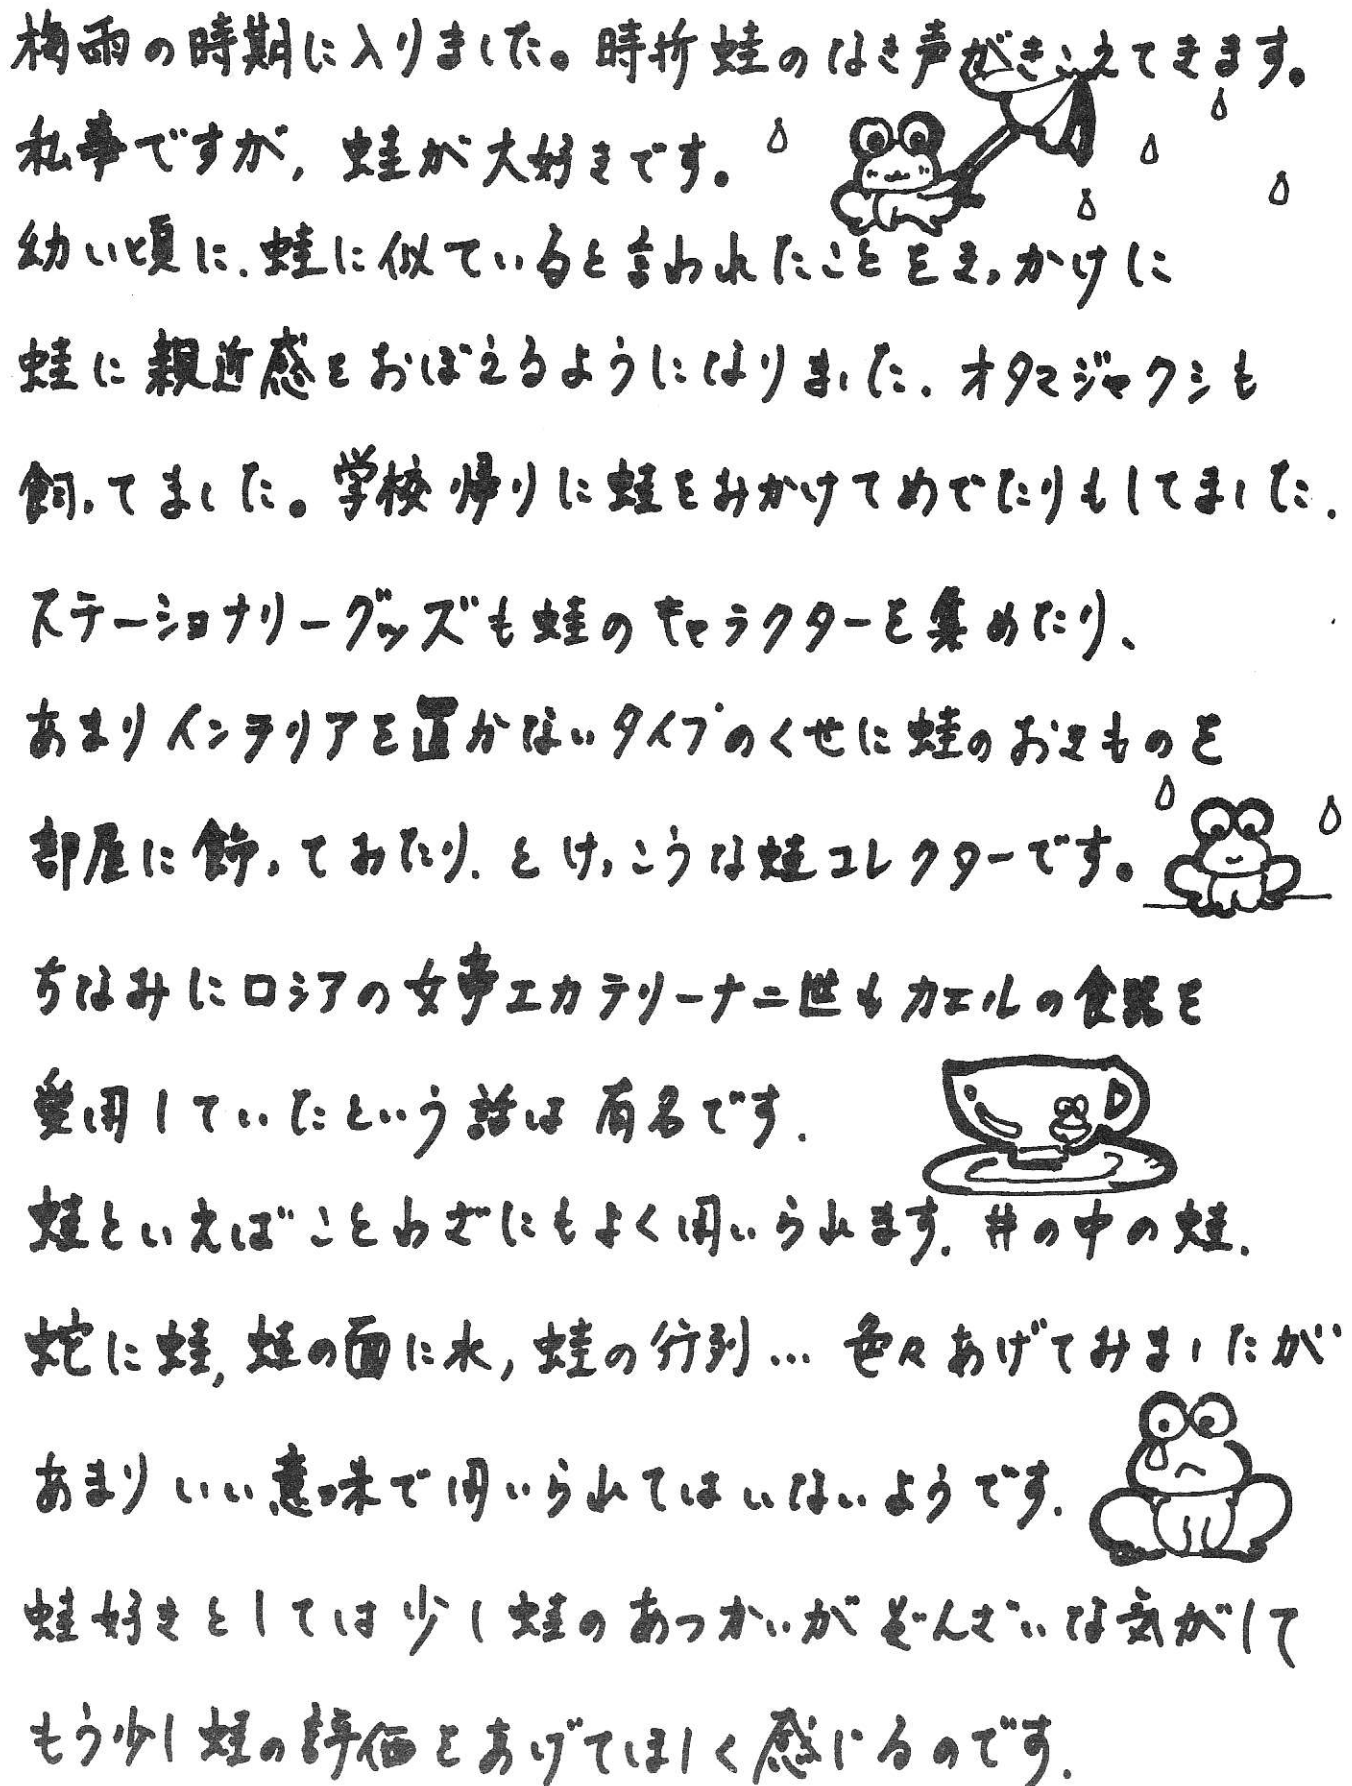 梅雨の時期に入りました。時折蛙のなき声がきこえてきます。
私事ですが、蛙が大好きです。
幼い頃に、蛙に似ていると言われたことをきっかけに
蛙に親近感をおぼえるようになりました。オタマジャクシも
飼ってました。学校帰りに蛙をみかけてめでたりもしてました。
ステーショナリーグッズも蛙のキャラクターを集めたり、
あまりインテリアを置かないタイプのくせに蛙のおきものを
部屋に飾っておたり、とけっこうな蛙コレクターです。
ちなみにロシアの女帝エカテリーナ二世もカエルの食器を
愛用していたという話は有名です。
蛙といえばことわざにもよく用いられます。井の中の蛙、
蛇に蛙,蛙の面に水,蛙の行列…色々あげてみましたが
あまりいい意味で用いられてはいないようです。
蛙好きとしては少し蛙のあつかいがぞんざいな気がして
もう少し蛙の評価をあげてほしく感じるのです。